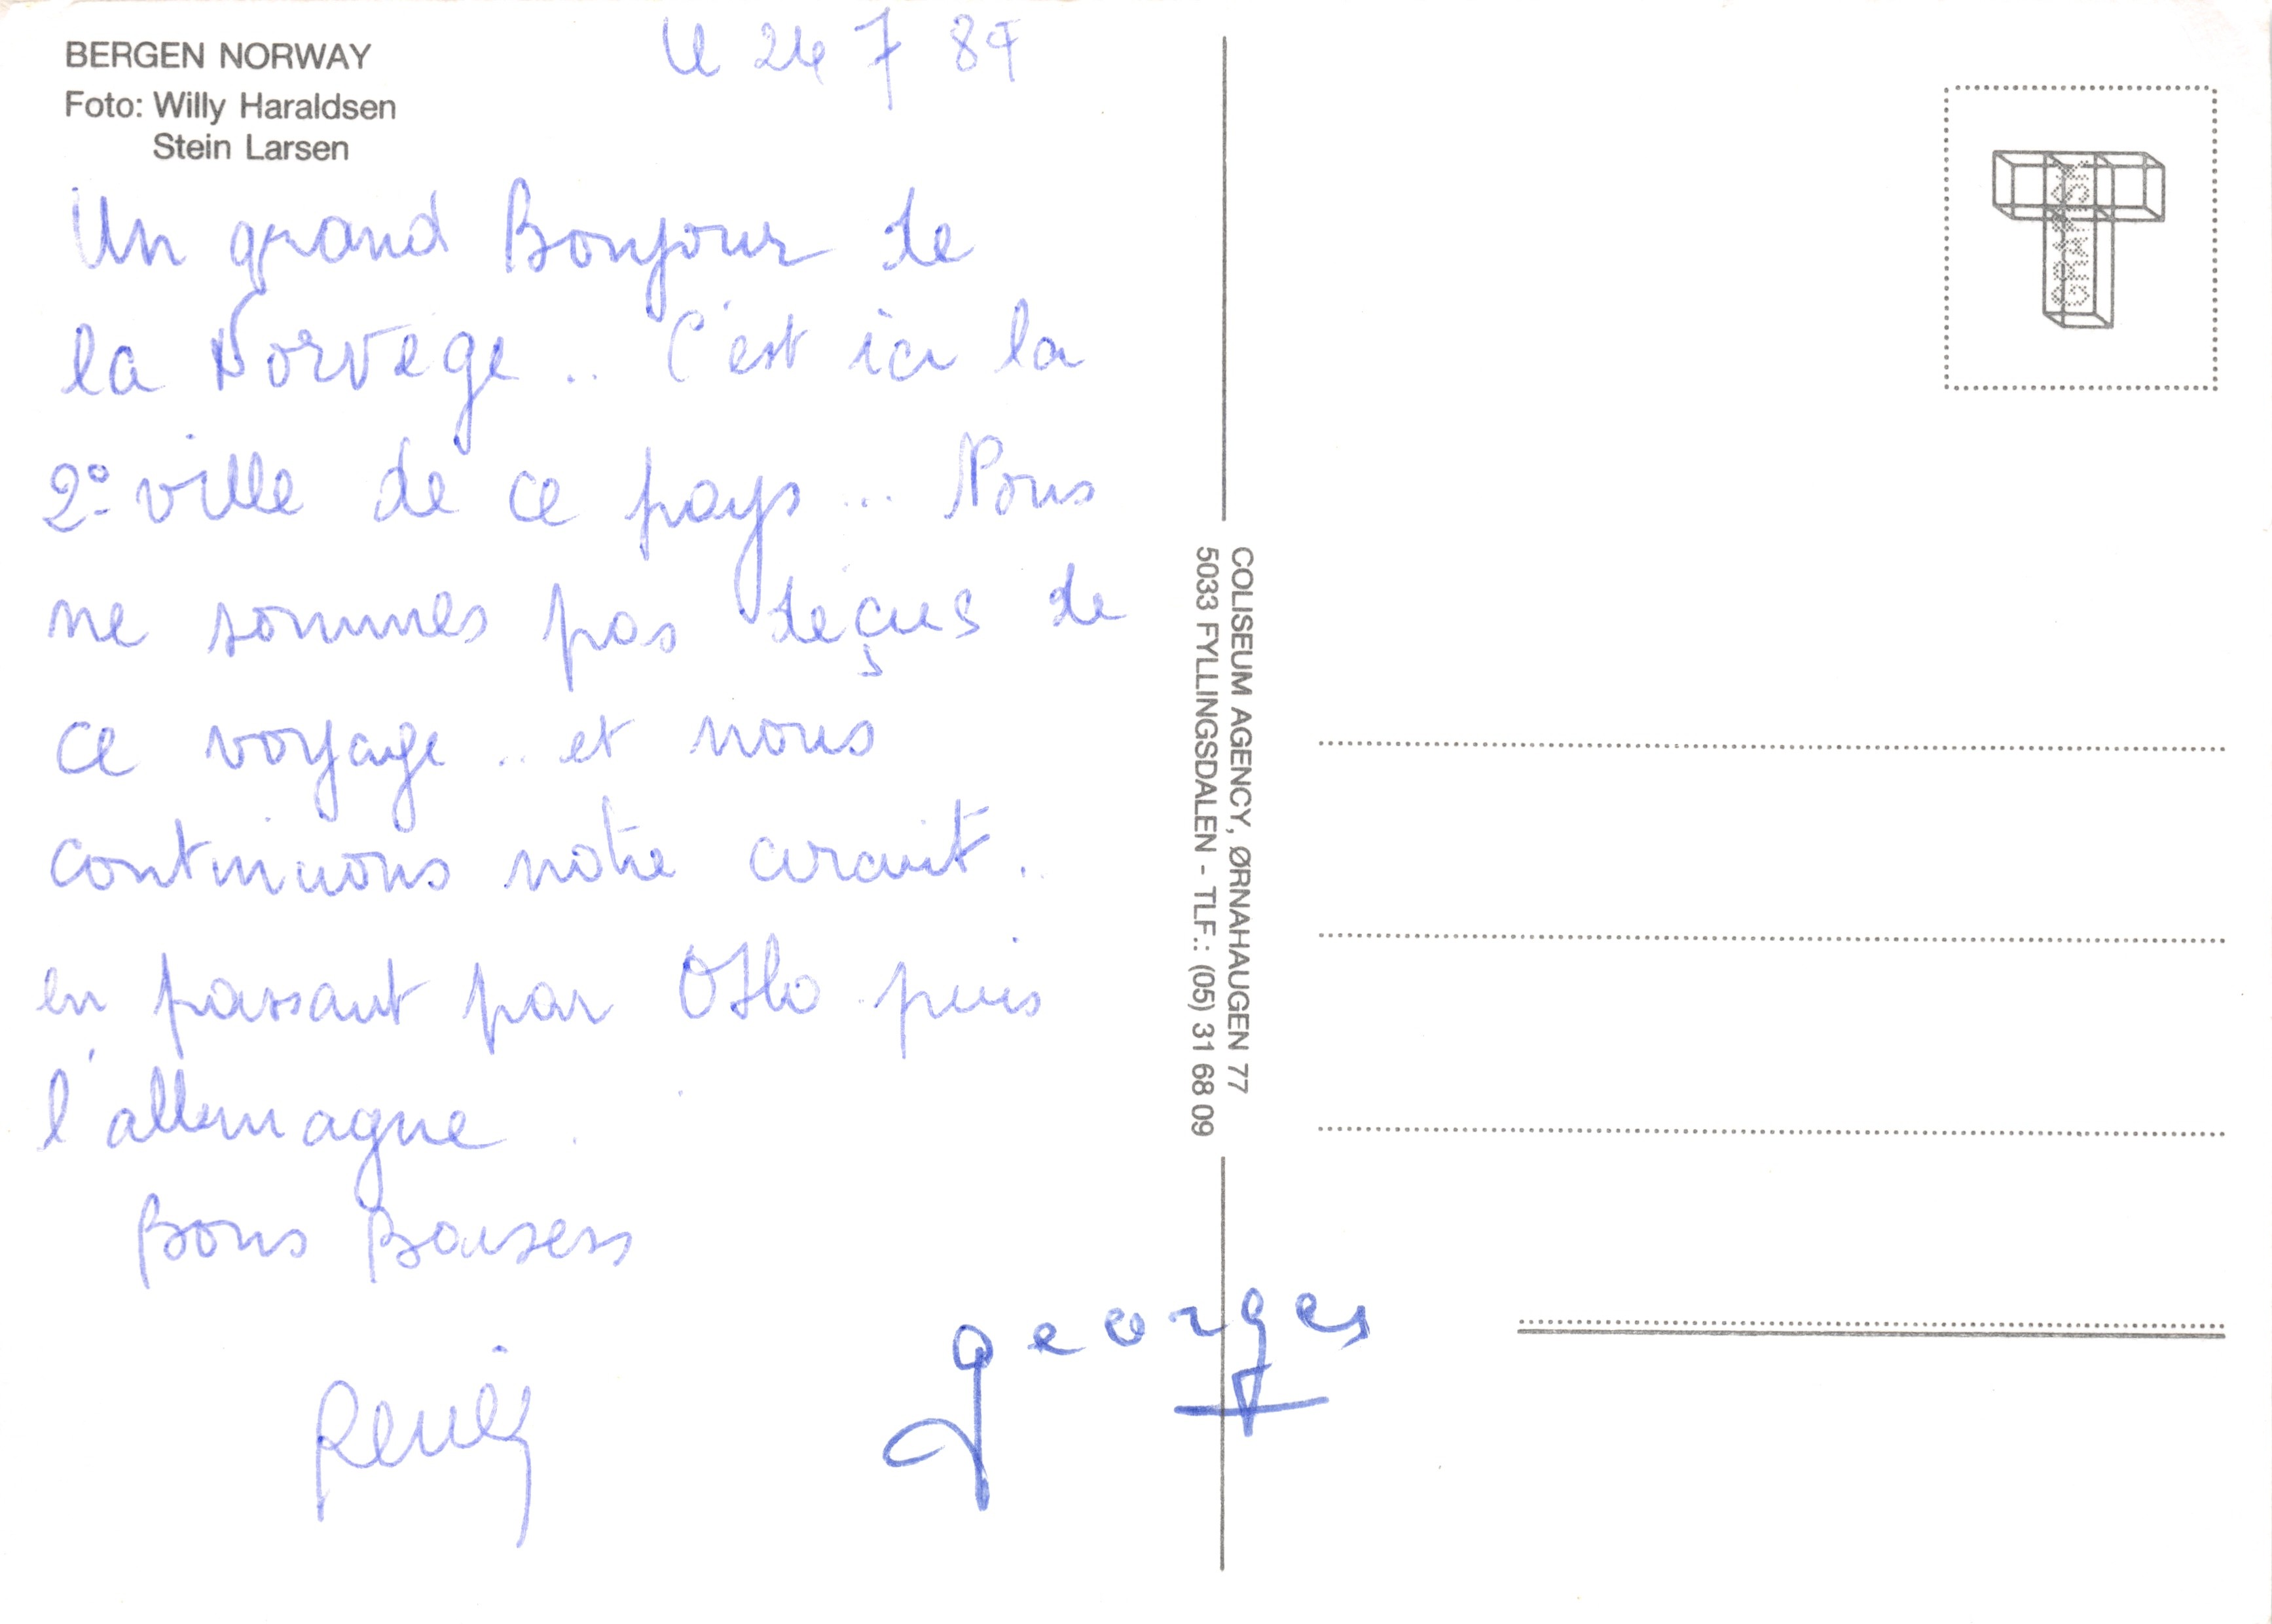 BERGEN NORWAY
Foto: Willy Haraldsen
Stein Larsen
le 24 7 89
Un grand Bonjour de
la Norvège .. C'est ici la
2° ville de ce pays ... Nous
ne sommes pas déçus de
ce voyage .. et nous
continuons notre circuit .
en passant par Oslo puis
l'allemagne .
Bons Baisers
georges
COLISEUM AGENCY, ØRNAHAUGEN 77
5033 FYLLINGSDALEN - TLF.: (05) 31 68 09